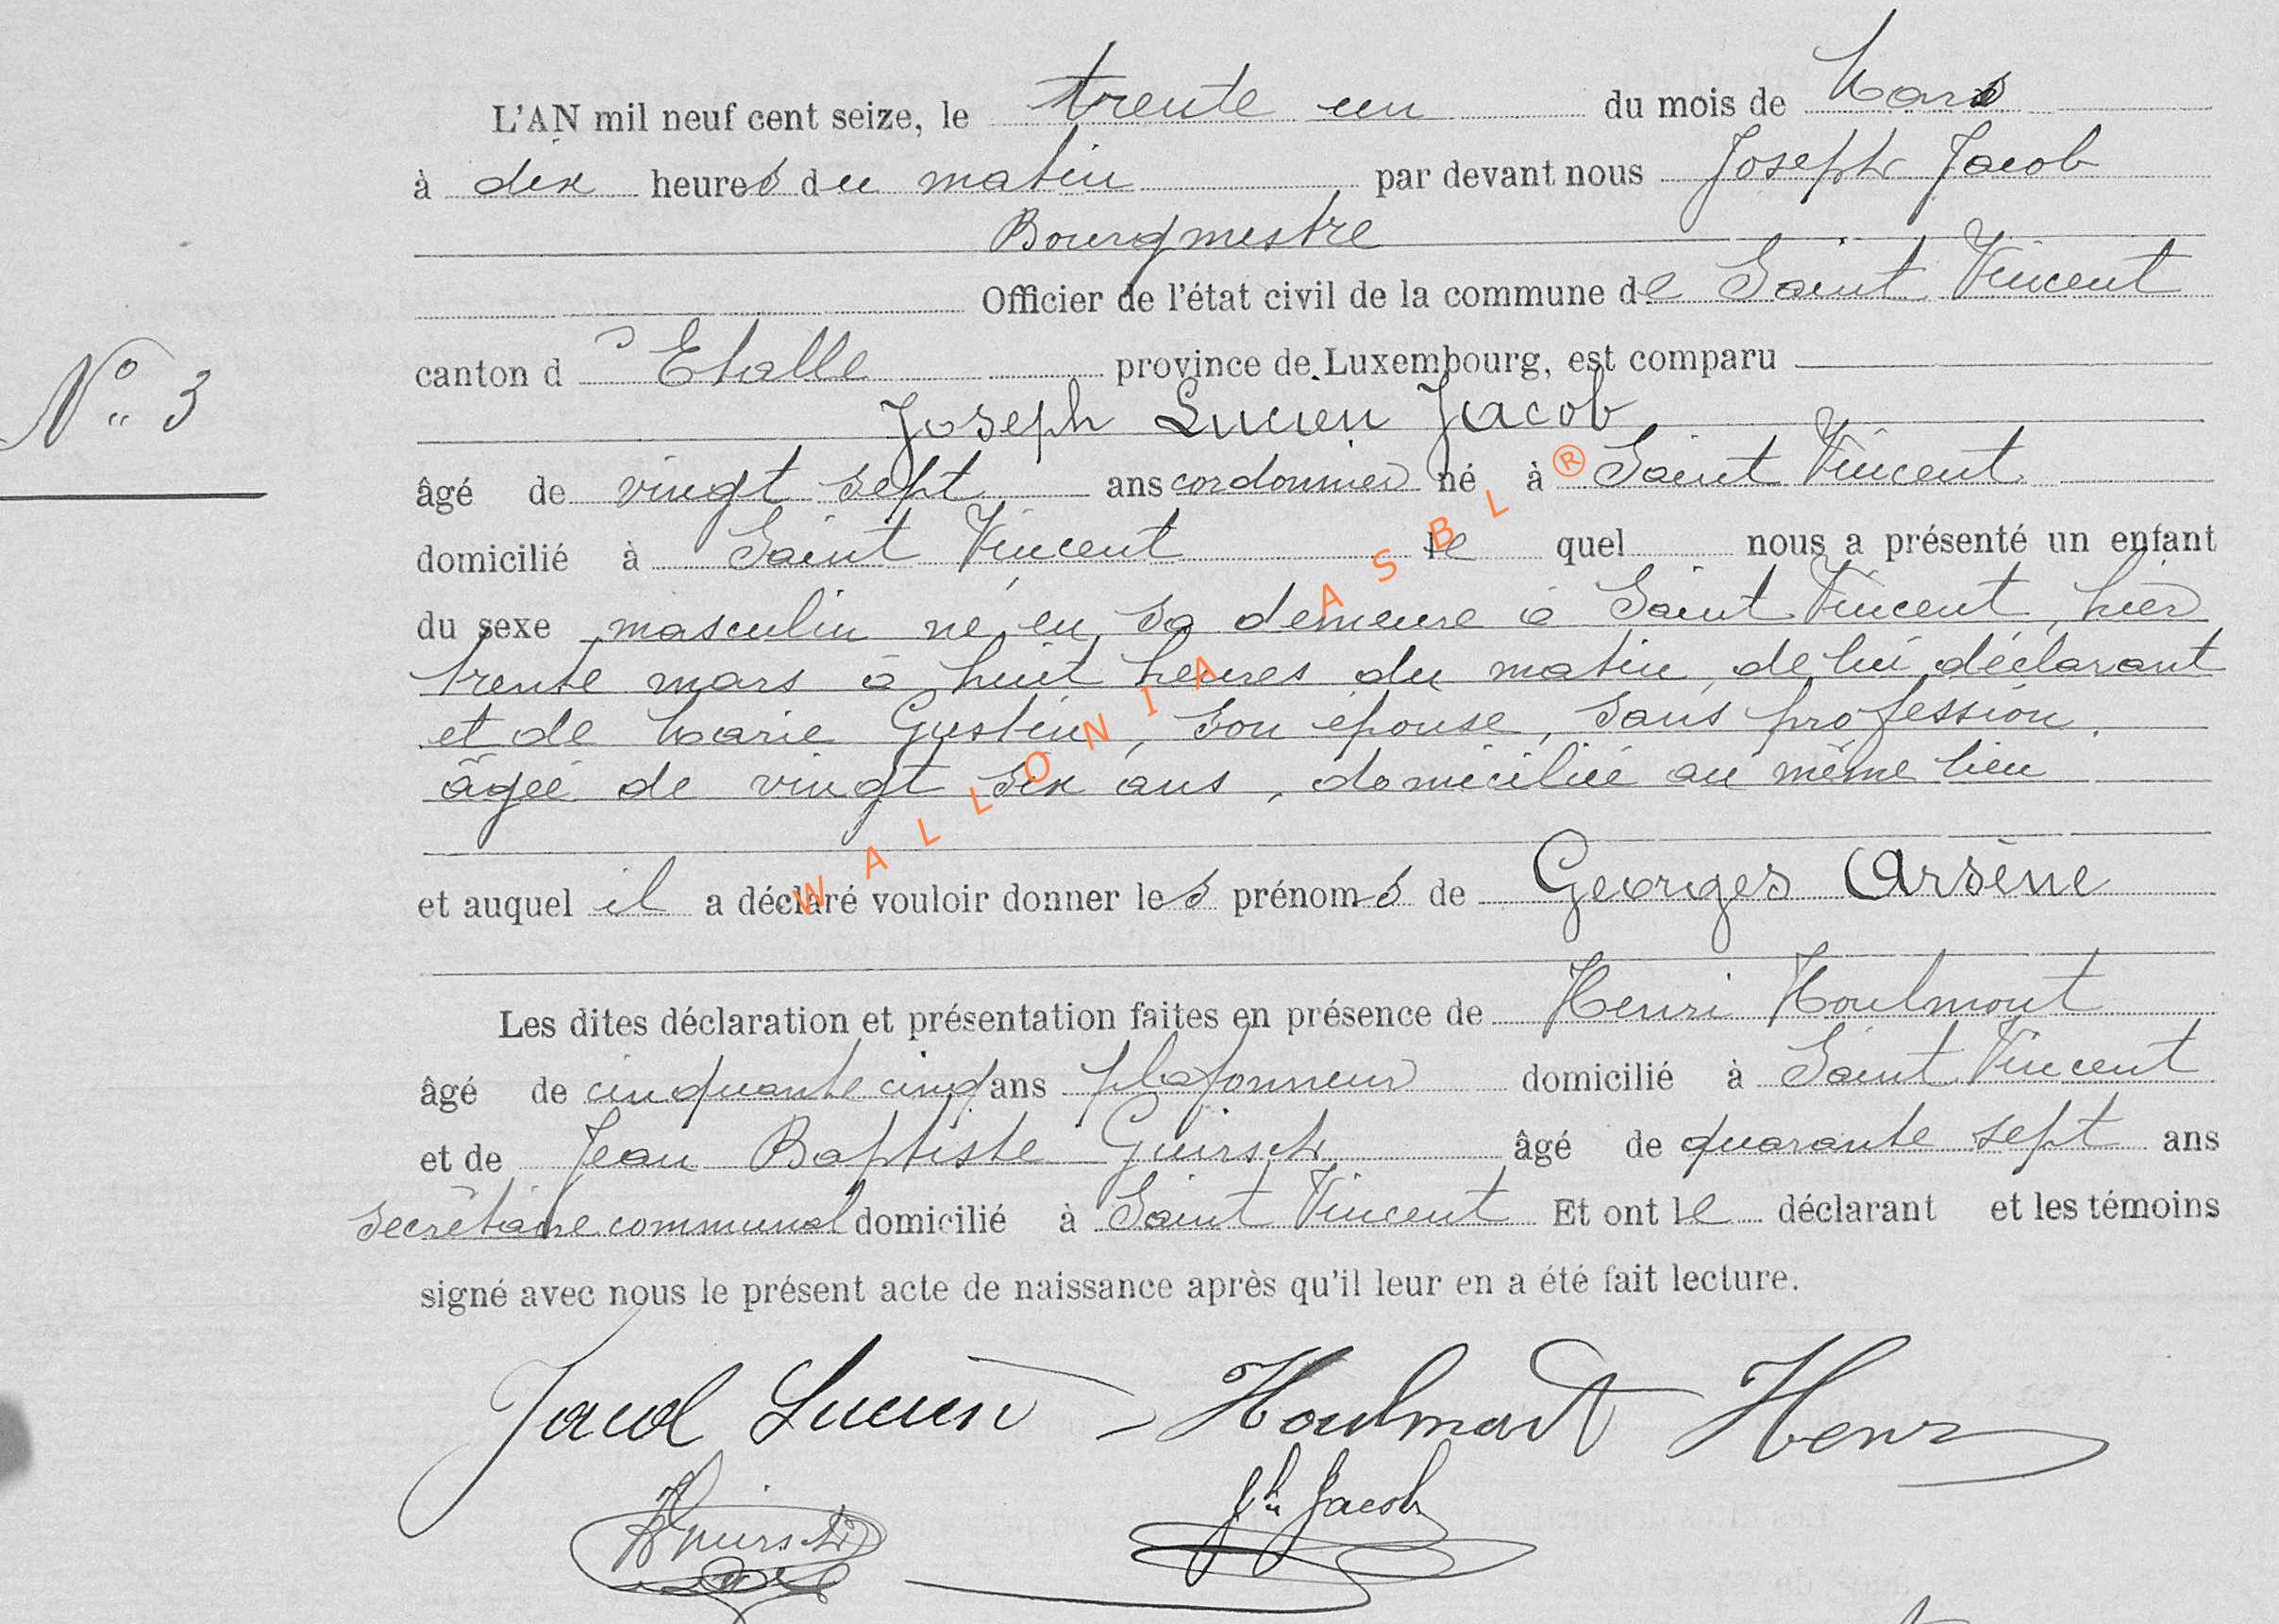 L'AN mil neuf cent seize, le trente un du mois de Mars
à dix heures du matin, par devant nous Joseph Jacob
Bourgmestre
Officier de l'état civil de la commune de Saint Vincent
canton d'Etalle province de Luxembourg, est comparu
N° 3
Joseph Lucien Jacob
âgé de vingt sept ans cordonnier né à Saint Vincent
domicilié à Saint Vincent le quel nous a présenté un enfant
du sexe masculin né en sa demeure à Saint Vincent, hier
trente mars à huit heures du matin, de lui déclarant
et de Marie Gustin, son épouse, sans profession,
âgée de vingt six ans, domiciliée au même lieu
et auquel il a déclaré vouloir donner les prénoms de Georges Arsène
Les dites déclaration et présentation faites en présence de Henri Houlmont
âgé de cinquante cinq ans plafonneur domicilié à Saint Vincent
et de Jean Baptiste Guirsch âgé de quarante sept ans
secrétaire communal domicilié à Saint Vincent Et ont le déclarant et les témoins
signé avec nous le présent acte de naissance après qu'il leur en a été fait lecture.
Jacob Lucien - Houlmont Henri
Guirsch Jh Jacob
WALLONIA ASBL ®